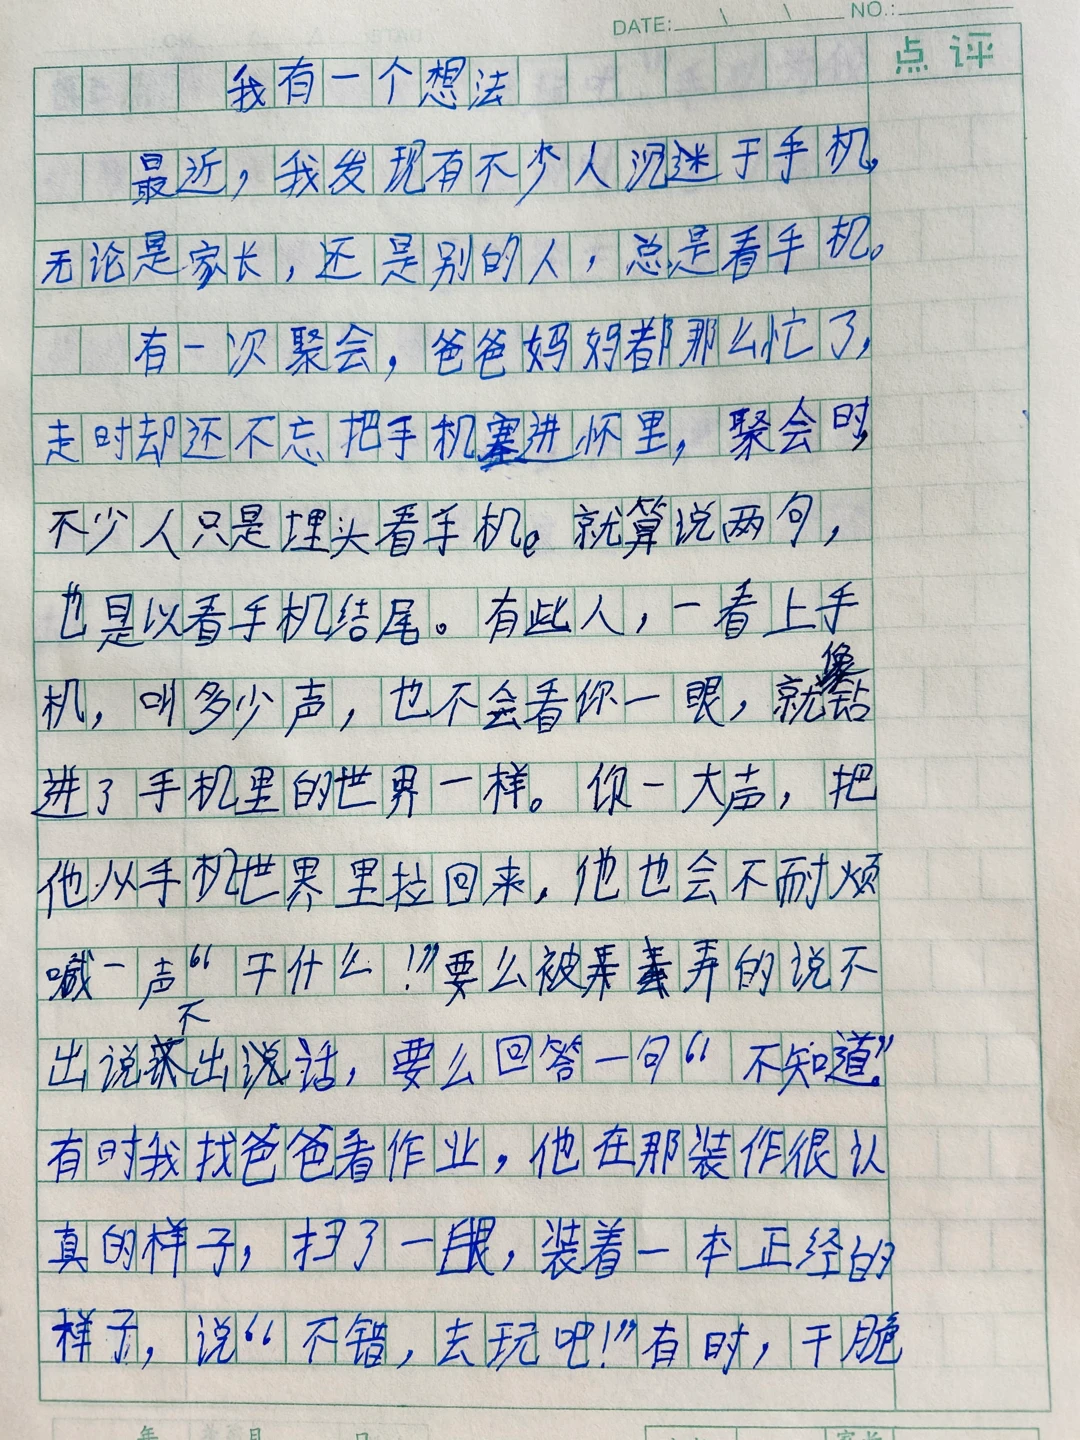 DATE: NO.:
点评
我有一个想法
最近，我发现有不少人沉迷于手机，
无论是家长，还是别的人，总是看手机。
有一次聚会，爸爸妈妈都那么忙了，
走时却还不忘把手机塞进怀里，聚会时，
不少人只是埋头看手机。就算说两句，
也是以看手机结尾。有些人，一看上手
机，叫多少声，也不会看你一眼，就像钻
进了手机里的世界一样。你一大声，把
他从手机世界里拉回来，他也会不耐烦
喊一声“干什么！”要么被弄的说不
出说不出话，要么回答一句“不知道。”
有时我找爸爸看作业，他在那装作很认
真的样子，扫了一眼，装着一本正经的
样子，说“不错，去玩吧！”有时，干脆
年 月 日
家长